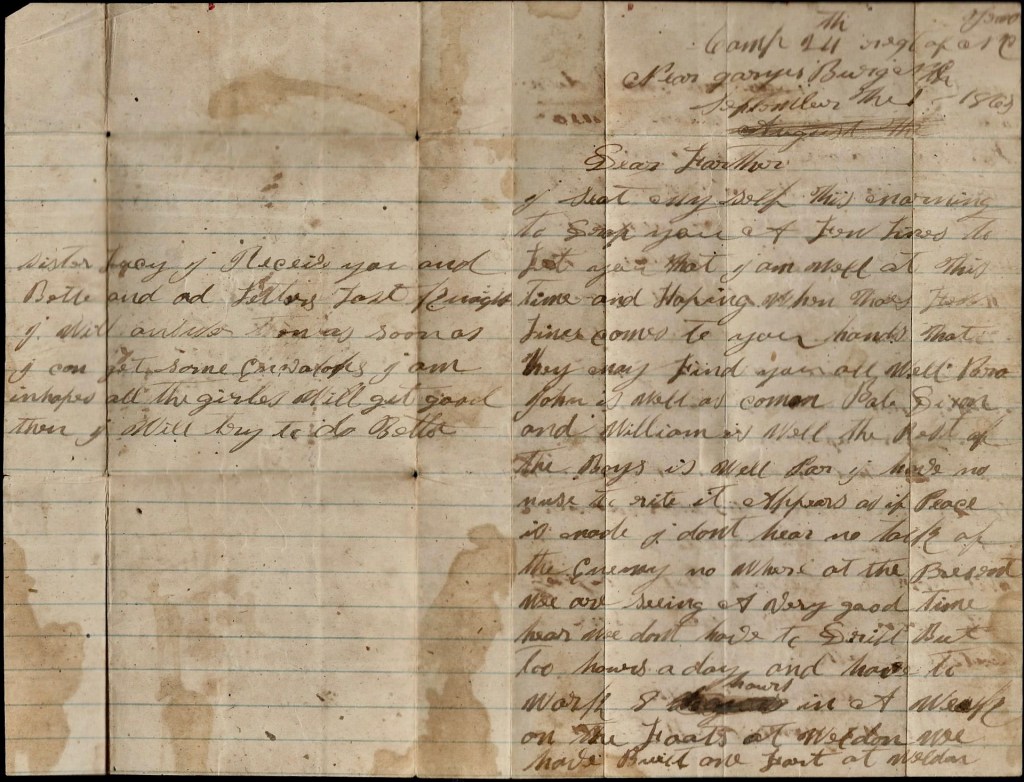 Camp 24th regt of N C
Near garys Burg N C
September the 1 1863
August the
Dear Farther
I Seat my self this morning
to Drop you A Few Lines to
Let you that I am Well at this
time and Hoping When thoes Few
Lines comes to you hands that
they may Find you all Well
John is Well as comon Dixon
and William is Well the Rest of
the Boys is Well Par I have no
nuse to rite it Appears as if Peace
is made I dont hear no talk of
the Enemy no Where at the Present
We are Seeing A very good time
hear We dont have to Drill But
too hours a day and have to
Work 8 hours in A Week
on the Foats at Weldon We
have Built one Foart at Weldon
Sister Lucy I Receiv you and
Bette and ad Letters Last Knight
I Will as soon as
I can get some I am
inhopes all the girles Will get good
then I Will try to do Better